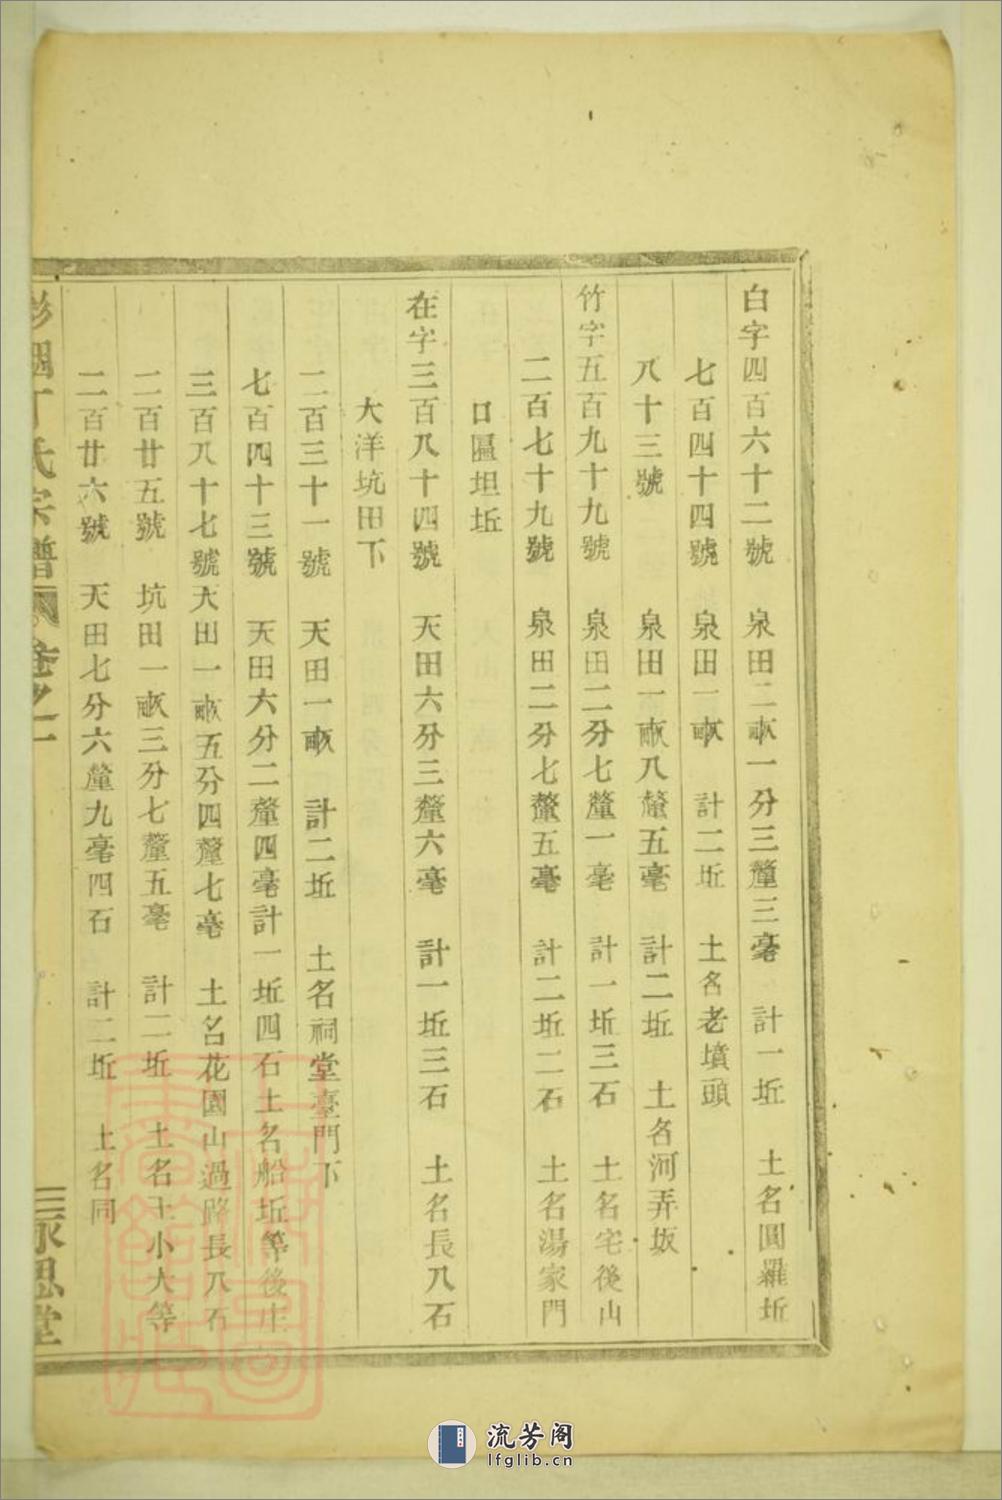 白字四百六十二號　泉田二畝一分三釐三毫　計一坵　土名圓羅坵
七百四十四號　泉田一畝　計二坵　土名老墳頭
八十三號　泉田一畝八釐五毫　計二坵　土名河弄坂
竹字五百九十九號　泉田二分七釐一毫　計一坵三石　土名宅後山
二百七十九號　泉田二分七釐五毫　計二坵二石　土名湯家門
口區坦坵
在字三百八十四號　天田六分三釐六毫　計一坵三石　土名長八石
大洋坑田下
二百三十一號　天田一畝　計二坵　土名祠堂臺門下
七百四十三號　天田六分二釐四毫計一坵四石土名船坵等後庄
三百八十七號大田一畝五分四釐七毫　土名花園山過路長八石
二百廿五號　坑田一畝三分七釐五毫　計二坵　土名土小大等
二百廿六號　天田七分六釐九毫四石　計二坵　土名同
丁氏宗譜　卷之一　三　永思堂
流芳阁
lfglib.cn